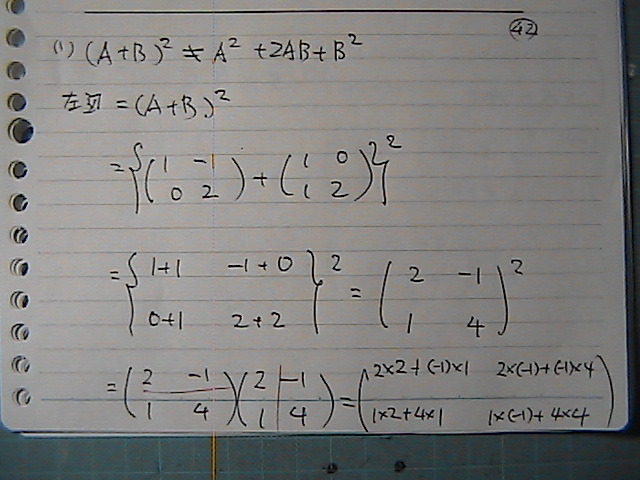 42
(1) (A+B)² ≠ A² + 2AB + B²
左辺 = (A+B)²
= {(1 -1
0 2) + (1 0
1 2)}²
= {1+1 -1+0
0+1 2+2}² = (2 -1
1 4)²
= (2 -1
1 4)(2 -1
1 4) = (2×2+(-1)×1 2×(-1)+(-1)×4
1×2+4×1 1×(-1)+4×4)